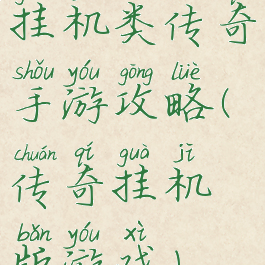 挂机类传奇
shǒu yóu gōng lüè
手游攻略(
chuán qí guà jī
传奇挂机
bǎn yóu xì
版游戏)